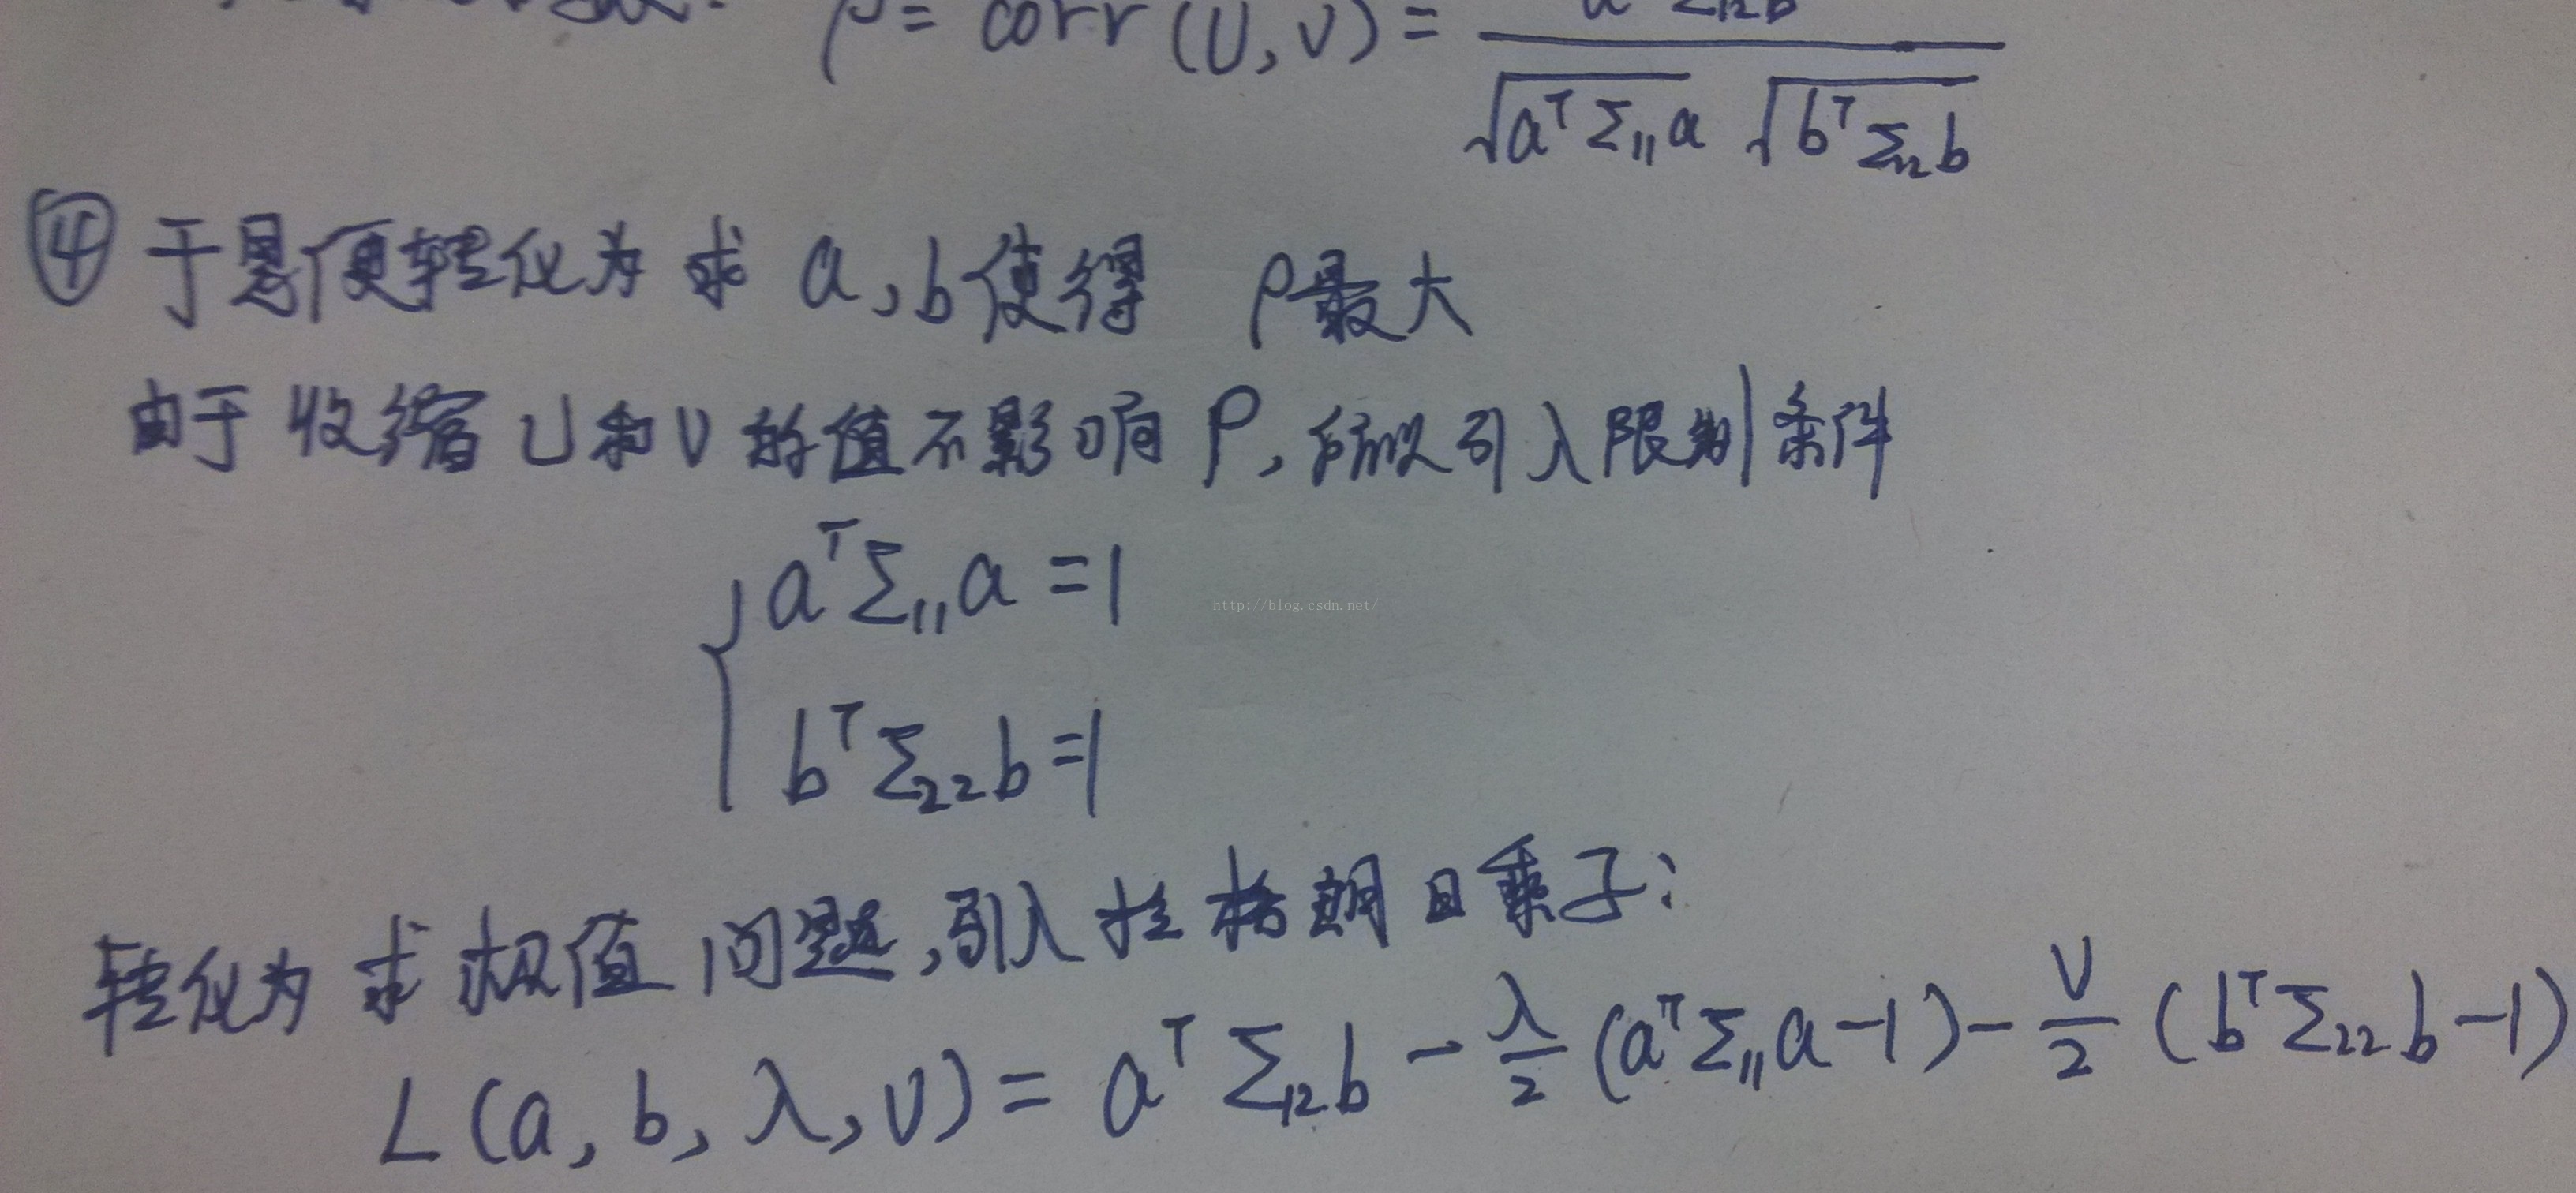 ρ = corr(U,V) = a Σ₁₂b / √(aᵀΣ₁₁a) √(bᵀΣ₂₂b)
④ 于是便转化为 求 a,b使得 ρ最大
由于 收缩 U和V 的值不影响 ρ,所以引入限制条件
{ aᵀΣ₁₁a = 1
http://blog.csdn.net/
bᵀΣ₂₂b=1
转化为 求极值问题,引入拉格朗日乘子:
L(a, b, λ, ν) = aᵀΣ₁₂b - λ/2 (aᵀΣ₁₁a-1) - ν/2 (bᵀΣ₂₂b-1)